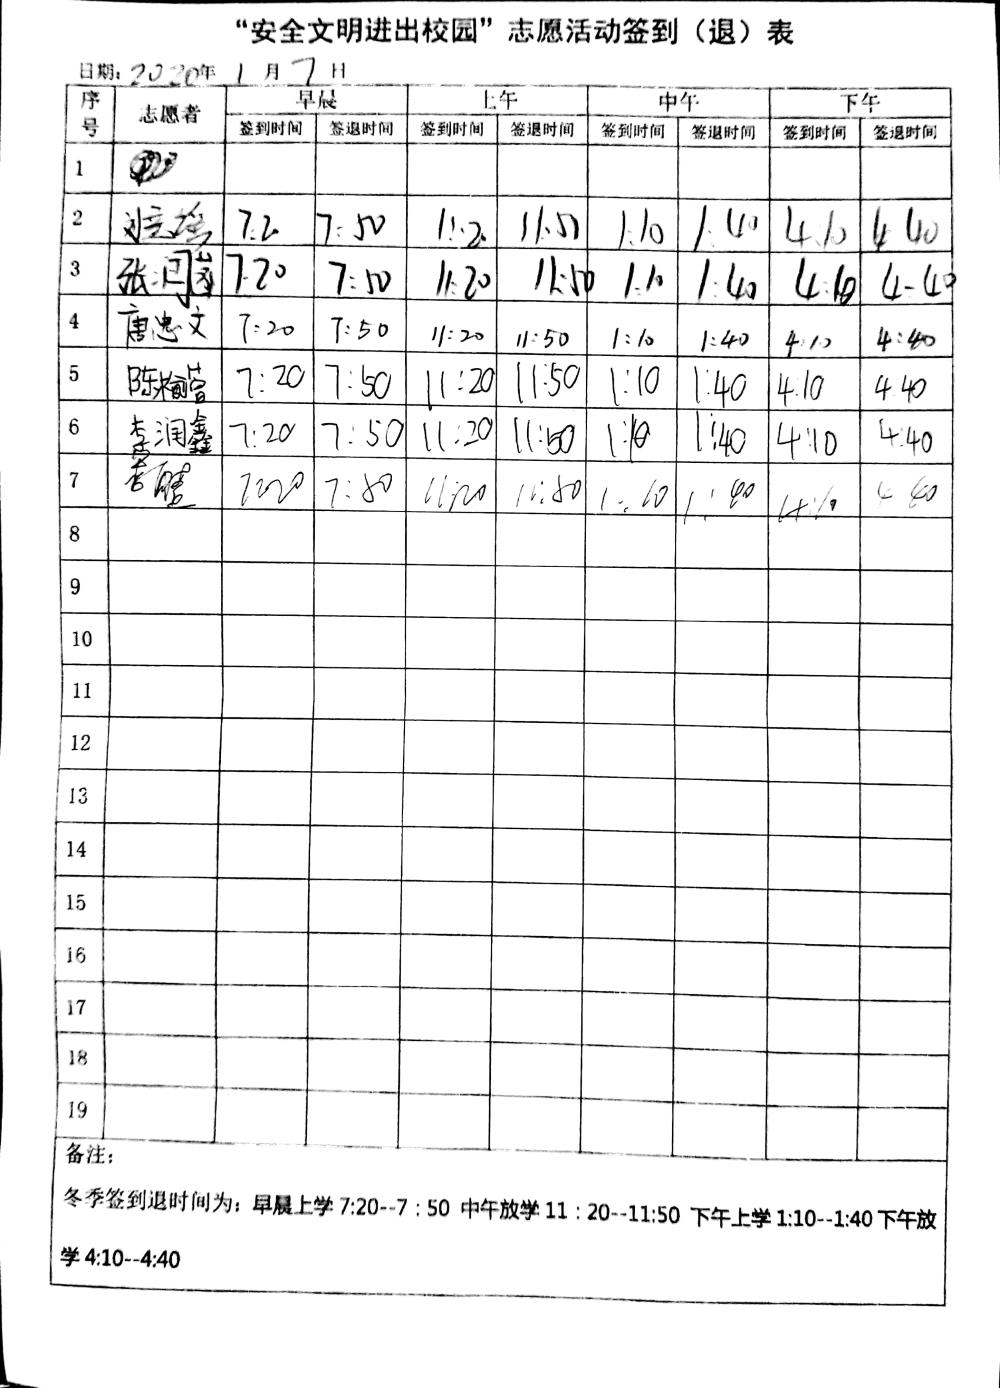 “安全文明进出校园”志愿活动签到（退）表
日期: 2020年 1 月 7 日
序号 志愿者 早晨 上午 中午 下午
签到时间 签退时间 签到时间 签退时间 签到时间 签退时间 签到时间 签退时间
1
2 7:2 7:50 11:2 11:50 1:10 1:40 4:10 4:40
3 张闫 7:20 7:50 11:20 11:50 1:10 1:40 4:10 4-40
4 唐忠文 7:20 7:50 11:20 11:50 1:10 1:40 4:10 4:40
5 陈 7:20 7:50 11:20 11:50 1:10 1:40 4.10 4.40
6 李润鑫 7:20 7:50 11:20 11:50 1:10 1:40 4:10 4:40
7 7:20 7:50 11:20 11:50 1:10 1:40 4:10 4:40
8
9
10
11
12
13
14
15
16
17
18
19
备注:
冬季签到退时间为: 早晨上学 7:20--7：50 中午放学 11：20--11:50 下午上学 1:10--1:40 下午放
学 4:10--4:40